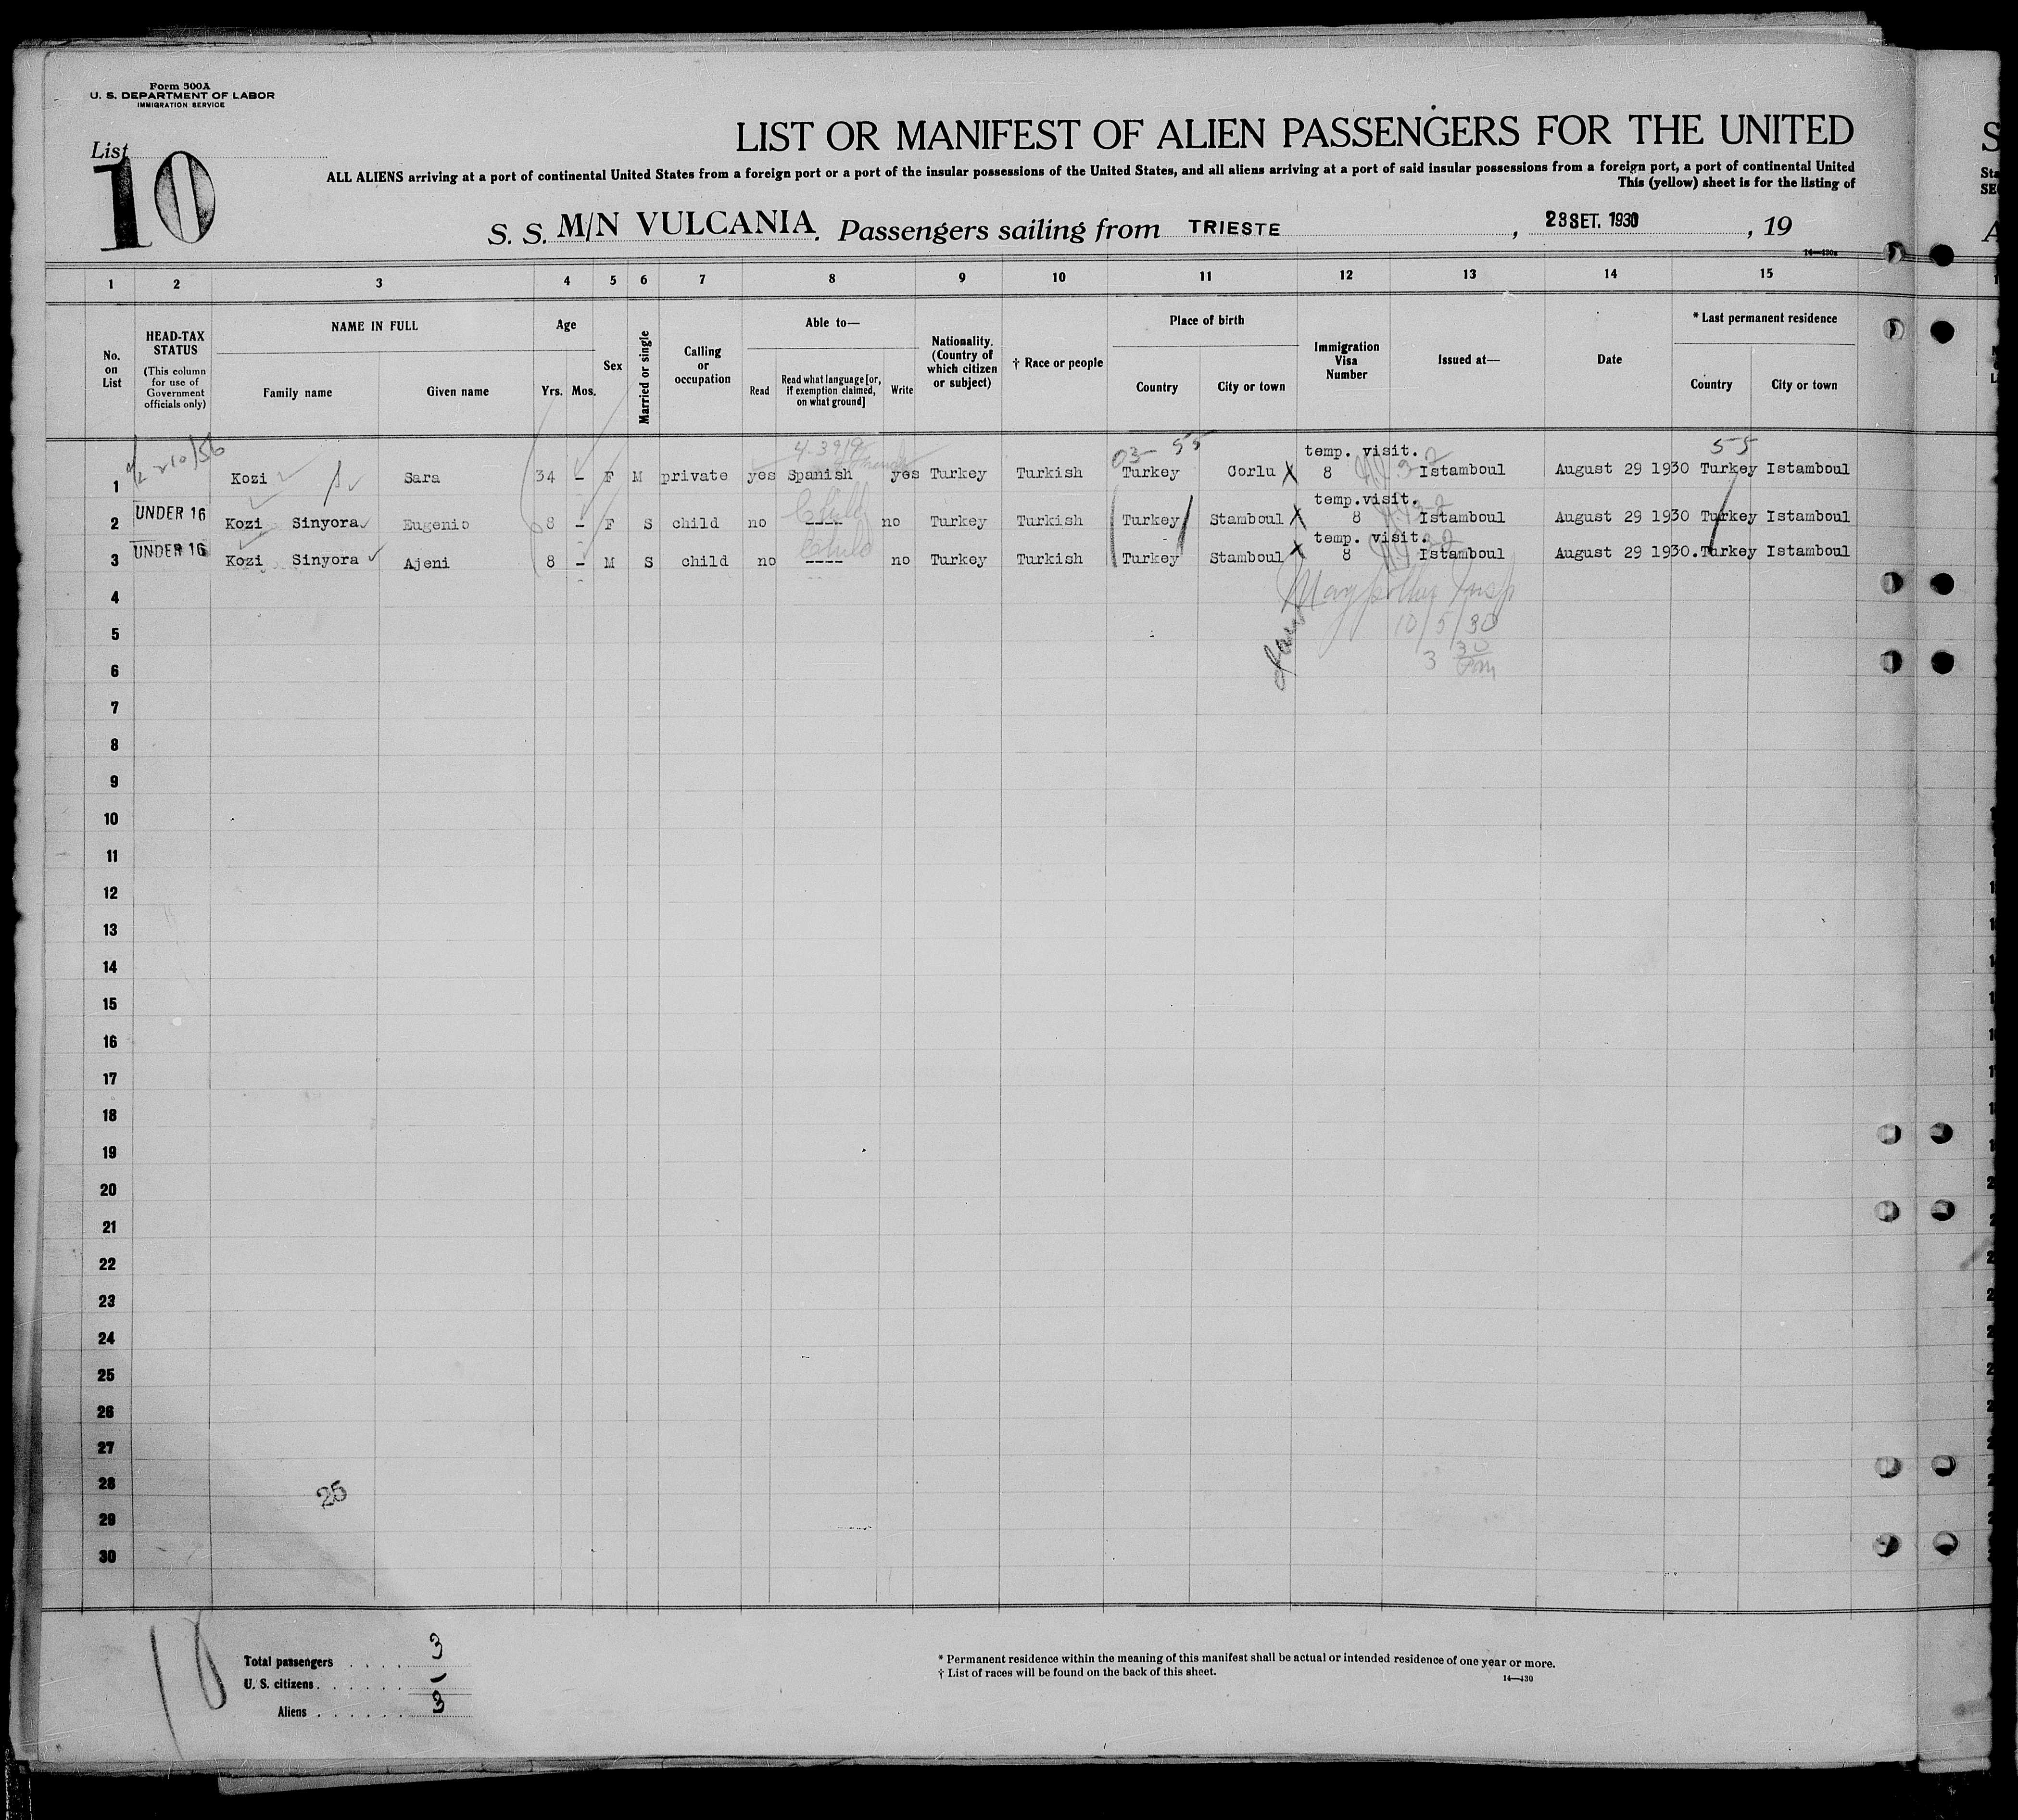 Form 500A
U. S. DEPARTMENT OF LABOR
IMMIGRATION SERVICE
List
10
LIST OR MANIFEST OF ALIEN PASSENGERS FOR THE UNITED
ALL ALIENS arriving at a port of continental United States from a foreign port or a port of the insular possessions of the United States, and all aliens arriving at a port of said insular possessions from a foreign port, a port of continental United
This (yellow) sheet is for the listing of
S. S. M/N VULCANIA. Passengers sailing from TRIESTE, 28 SET. 1930, 19
1 2 3 4 5 6 7 8 9 10 11 12 13 14 15
No. on List
HEAD-TAX STATUS
(This column for use of Government officials only)
NAME IN FULL
Family name Given name
Age
Yrs. Mos.
Sex
Married or single
Calling or occupation
Able to—
Read
Read what language [or, if exemption claimed, on what ground]
Write
Nationality. (Country of which citizen or subject)
† Race or people
Place of birth
Country City or town
Immigration Visa Number
Issued at—
Date
* Last permanent residence
Country City or town
03- 55 temp. visit. 55
1 Kozi Sara 34 - F M private yes Spanish yes Turkey Turkish Turkey Corlu X 8 Istamboul August 29 1930 Turkey Istamboul
UNDER 16 Child temp.visit.
2 Kozi Sinyora Eugenio 8 - F S child no ---- no Turkey Turkish Turkey Stamboul X 8 Istamboul August 29 1930 Turkey Istamboul
UNDER 16 Child temp. visit.
3 Kozi Sinyora Ajeni 8 - M S child no ---- no Turkey Turkish Turkey Stamboul X 8 Istamboul August 29 1930. Turkey Istamboul
4
Insp
5
10/5/30
6
3 30 Pm
7
8
9
10
11
12
13
14
15
16
17
18
19
20
21
22
23
24
25
26
27
28
25
29
30
10
Total passengers . . . . 3
U. S. citizens . . . . . . -
Aliens . . . . . . 3
* Permanent residence within the meaning of this manifest shall be actual or intended residence of one year or more.
† List of races will be found on the back of this sheet.
14—430